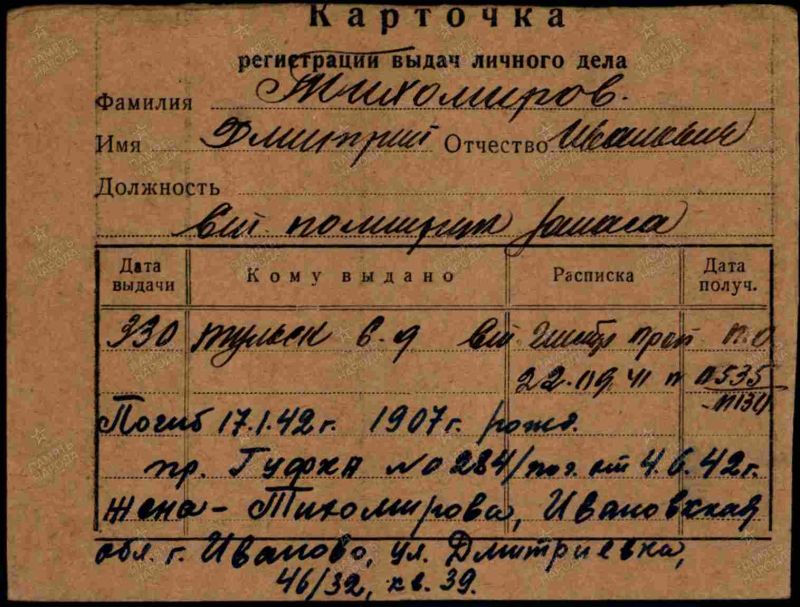 Карточка
регистрации выдач личного дела
Фамилия Тихомиров.
Имя Дмитрий Отчество Иванович
Должность
мл политрук запаса
Дата выдачи Кому выдано Расписка Дата получ.
330 Тульск в-д
22.09.41 п 535
Погиб 17.1.42г. 1907г. рожд.
пр. ГУФКА № 0284/пог. от 4.6.42г.
Жена - Тихомирова, Ивановская
обл. г. Иваново, ул. Дмитриевка,
46/32, кв. 39.